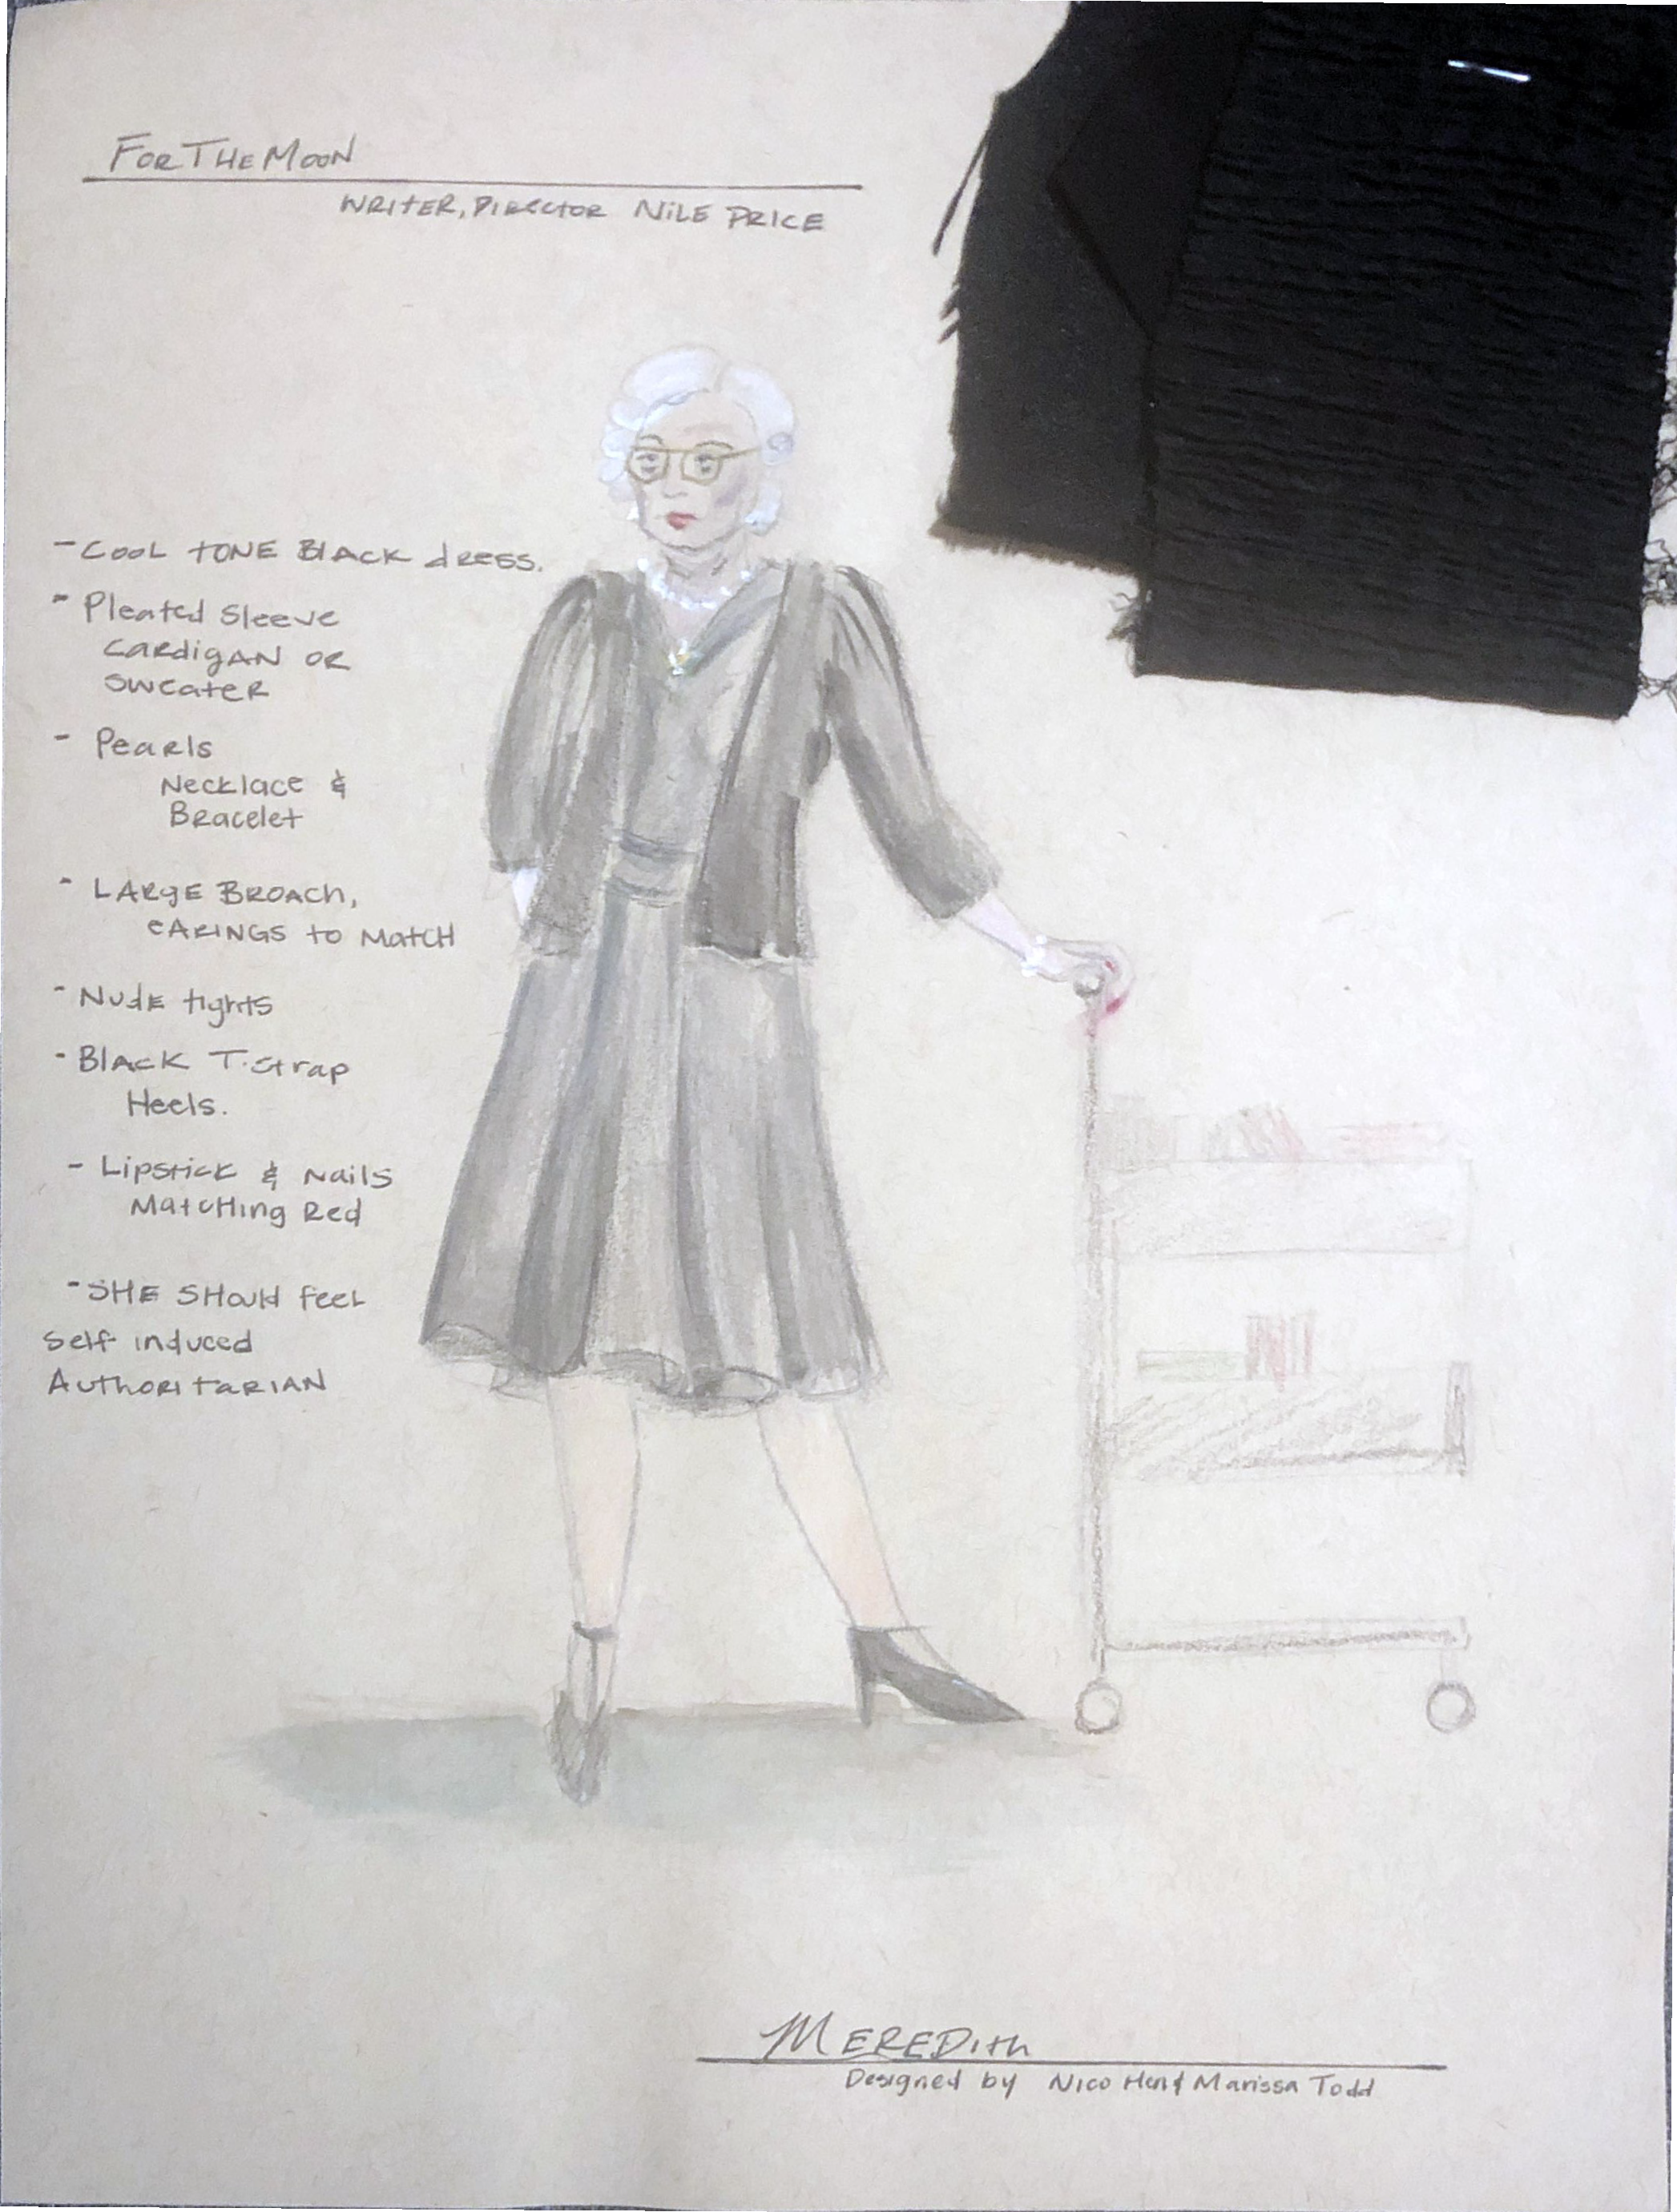 FOR THE MOON
WRITER, DIRECTOR NILE PRICE
- COOL TONE BLACK dRESS.
- Pleated Sleeve
CARdigAN OR
SWEATER
- Pearls
Necklace &
Bracelet
- LARgE BROACh,
EARINGS to MATCH
- NUdE tights
- BlAcK T-Strap
Heels.
- Lipstick & Nails
MatcHing Red
- SHE SHould feel
Self induced
AuthoritariAN
MEREDith
Designed by Nico & Marissa Todd